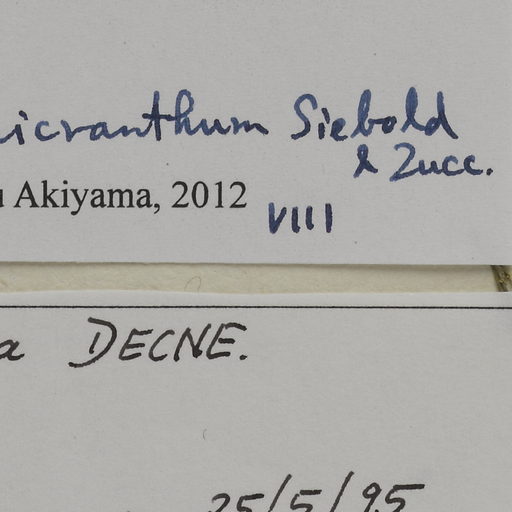 icranthum Siebold
& Zucc.
u Akiyama, 2012 VIII
a DECNE.
25/5/95